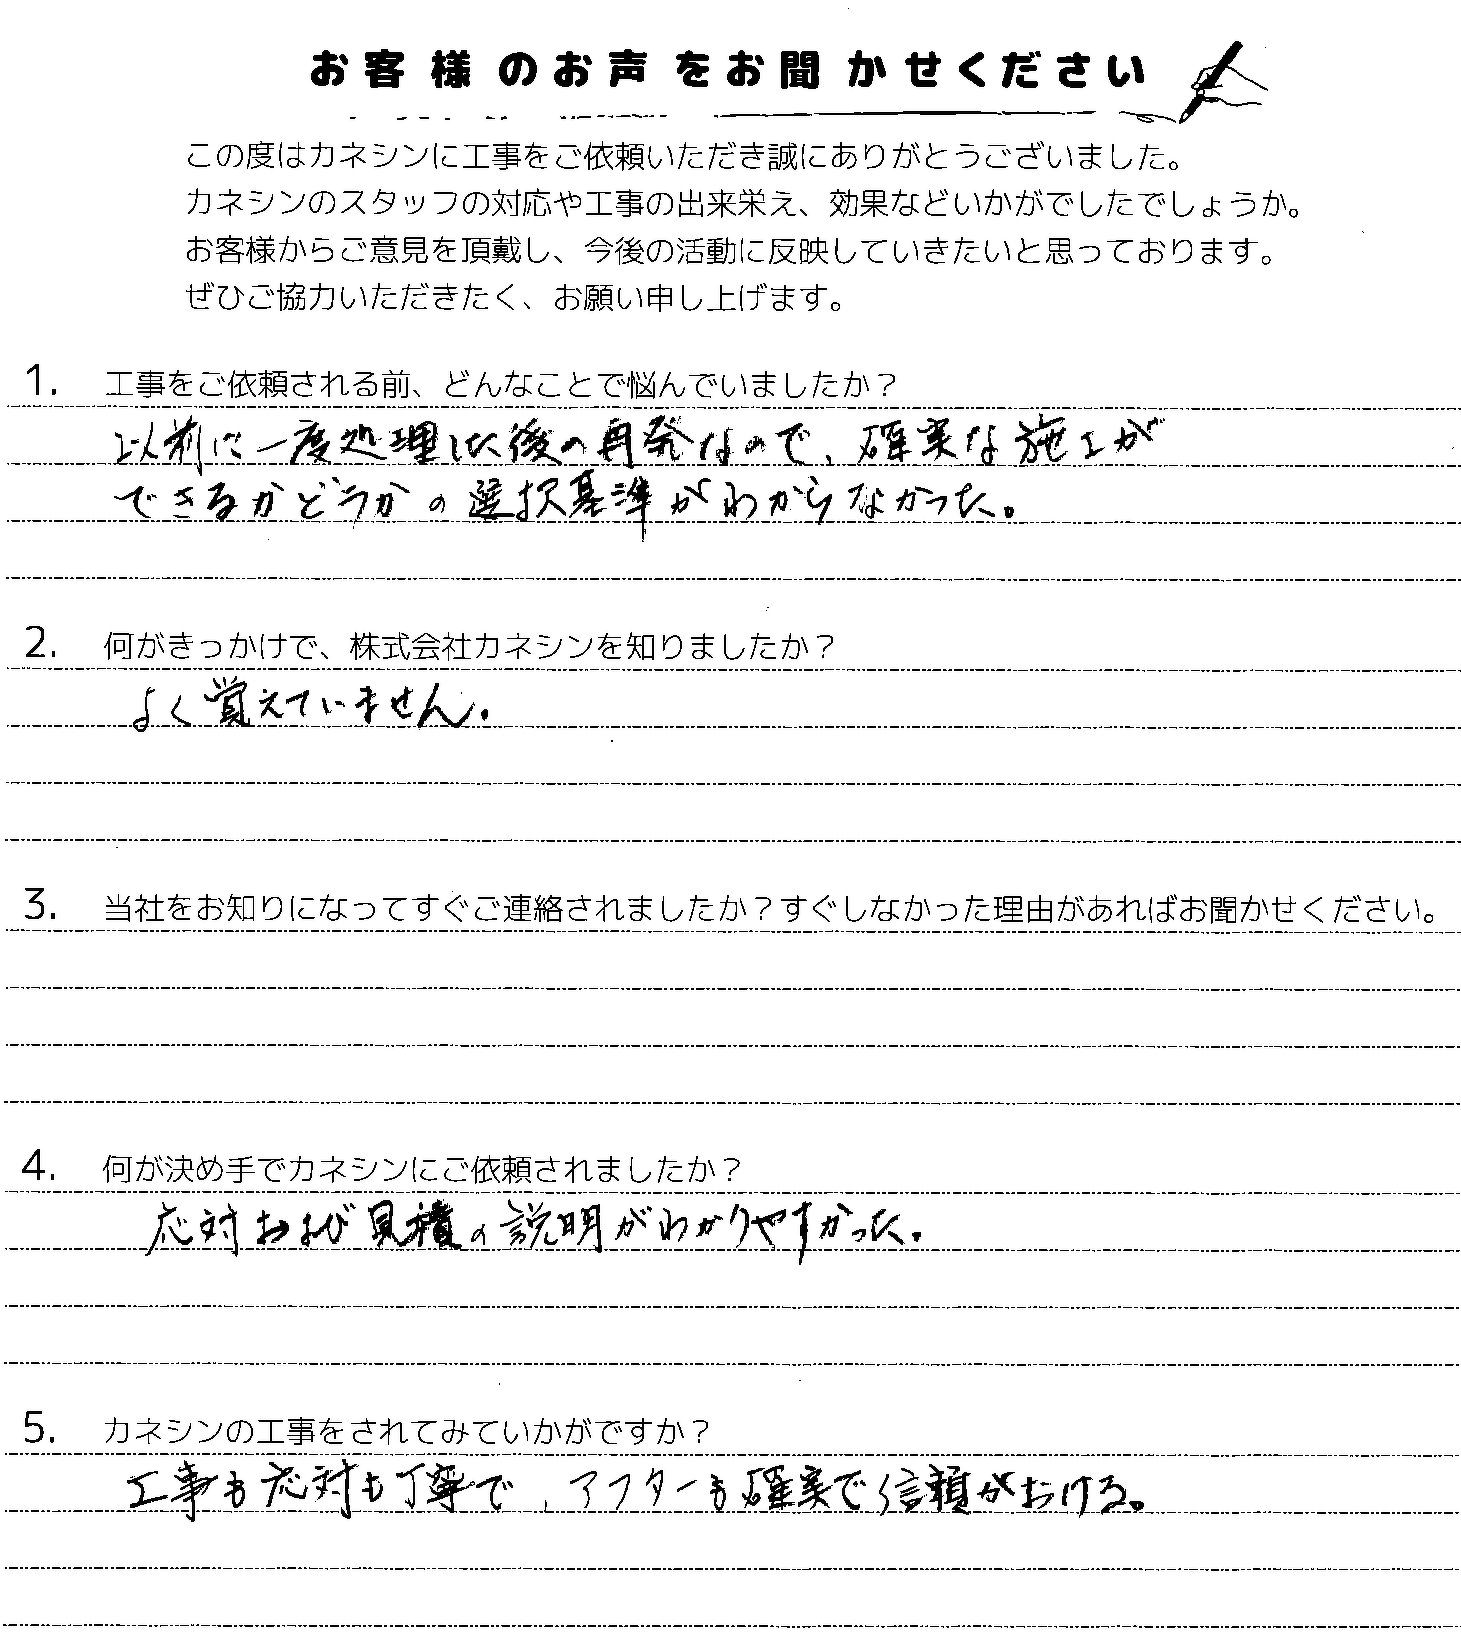 お客様のお声をお聞かせください
この度はカネシンに工事をご依頼いただき誠にありがとうございました。
カネシンのスタッフの対応や工事の出来栄え、効果などいかがでしたでしょうか。
お客様からご意見を頂戴し、今後の活動に反映していきたいと思っております。
ぜひご協力いただきたく、お願い申し上げます。
1. 工事をご依頼される前、どんなことで悩んでいましたか？
以前に一度処理した後の再発なので、確実な施工が
できるかどうかの選択基準がわからなかった。
2. 何がきっかけで、株式会社カネシンを知りましたか？
よく覚えていません。
3. 当社をお知りになってすぐご連絡されましたか？すぐしなかった理由があればお聞かせください。
4. 何が決め手でカネシンにご依頼されましたか？
応対および見積の説明がわかりやすかった。
5. カネシンの工事をされてみていかがですか？
工事も応対も丁寧で、アフターも確実で信頼がおける。